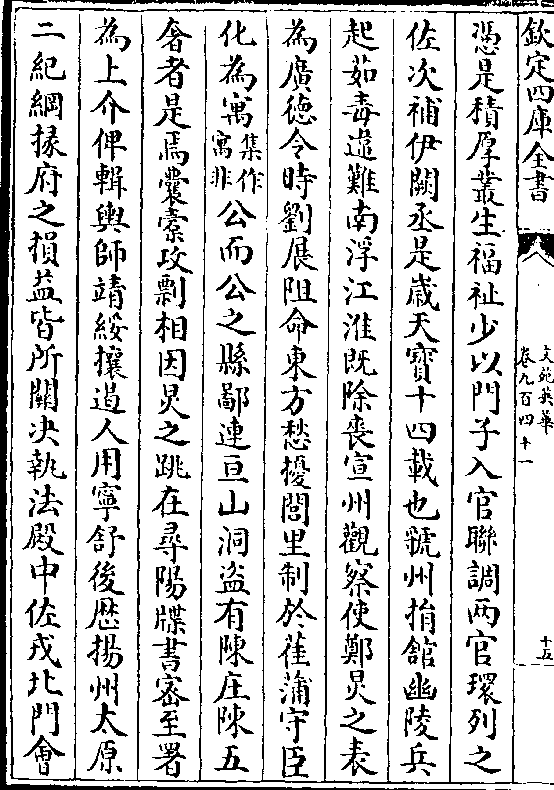 欽定四庫全書
文苑英華
卷九百四十一
十五
憑是積厚叢生福祉少以門子入官聯調两官環列之
佐次補伊闕丞是歳天寳十四載也虢州捐舘幽陵兵
起茹毒違難南浮江淮既除喪宣州觀察使鄭炅之表
為廣德令時劉展阻命東方愁擾閭里制於萑蒲守臣
化為寓集作寓非公而公之縣鄙連亘山洞盗有陳庄陳五
奢者是焉囊橐攻剽相因炅之跳在尋陽牒書宻至署
為上介俾輯輿師靖綏攘遏人用寧舒後歴揚州太原
二紀綱掾府之損益皆所關决執法殿中佐戎北門會